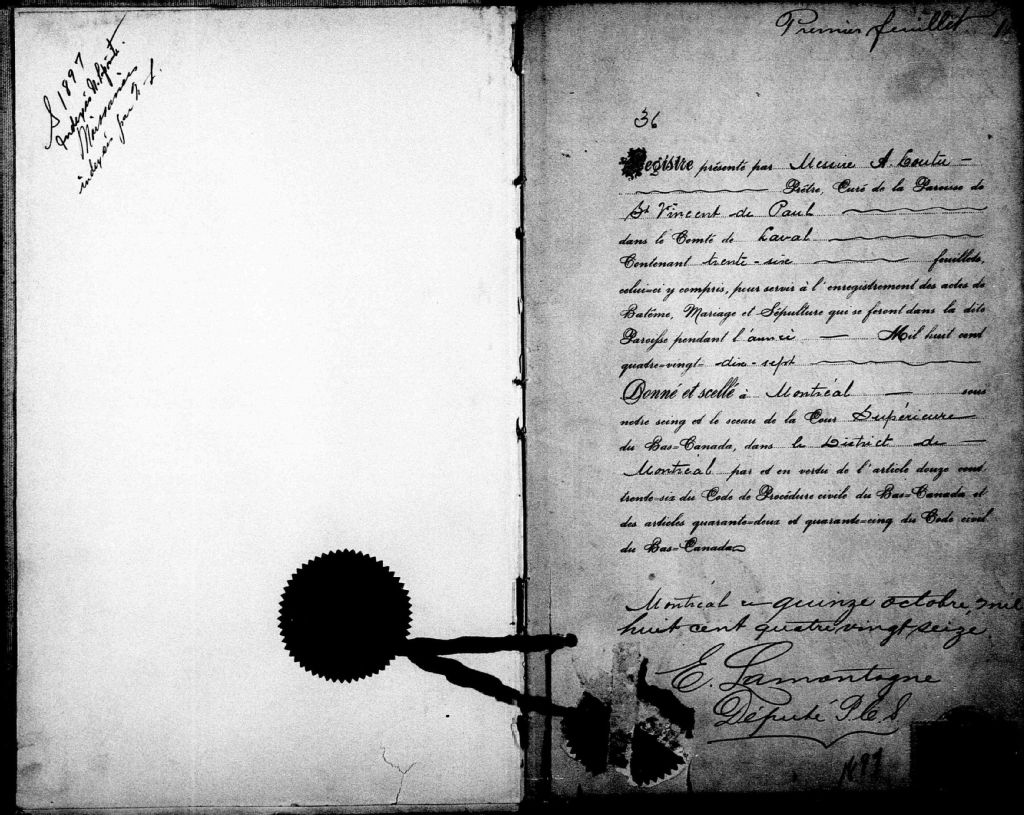 S 1897
indexés
Naissances
indexées par
Premier feuillet.
36
Registre présenté par Messire A.
Prêtre, Curé de la Paroisse de
St Vincent de Paul
dans le Comté de Laval
Contenant trente-six feuillets,
celui-ci y compris, pour servir à l'enregistrement des actes de
Batême, Mariage et Sépulture qui se feront dans la dite
Paroisse pendant l'année Mil huit cent
quatre-vingt-dix-sept
Donné et scellé à Montréal sous
notre seing et le sceau de la Cour Supérieure
du Bas-Canada, dans le District de
Montréal par et en vertu de l'article douze cent
trente-six du Code de Procédure civile du Bas-Canada et
des articles quarante-deux et quarante-cinq du Code civil
du Bas-Canada
Montréal ce quinze octobre, mil
huit cent quatre vingt seize.
E. Lamontagne
Député P.C.S